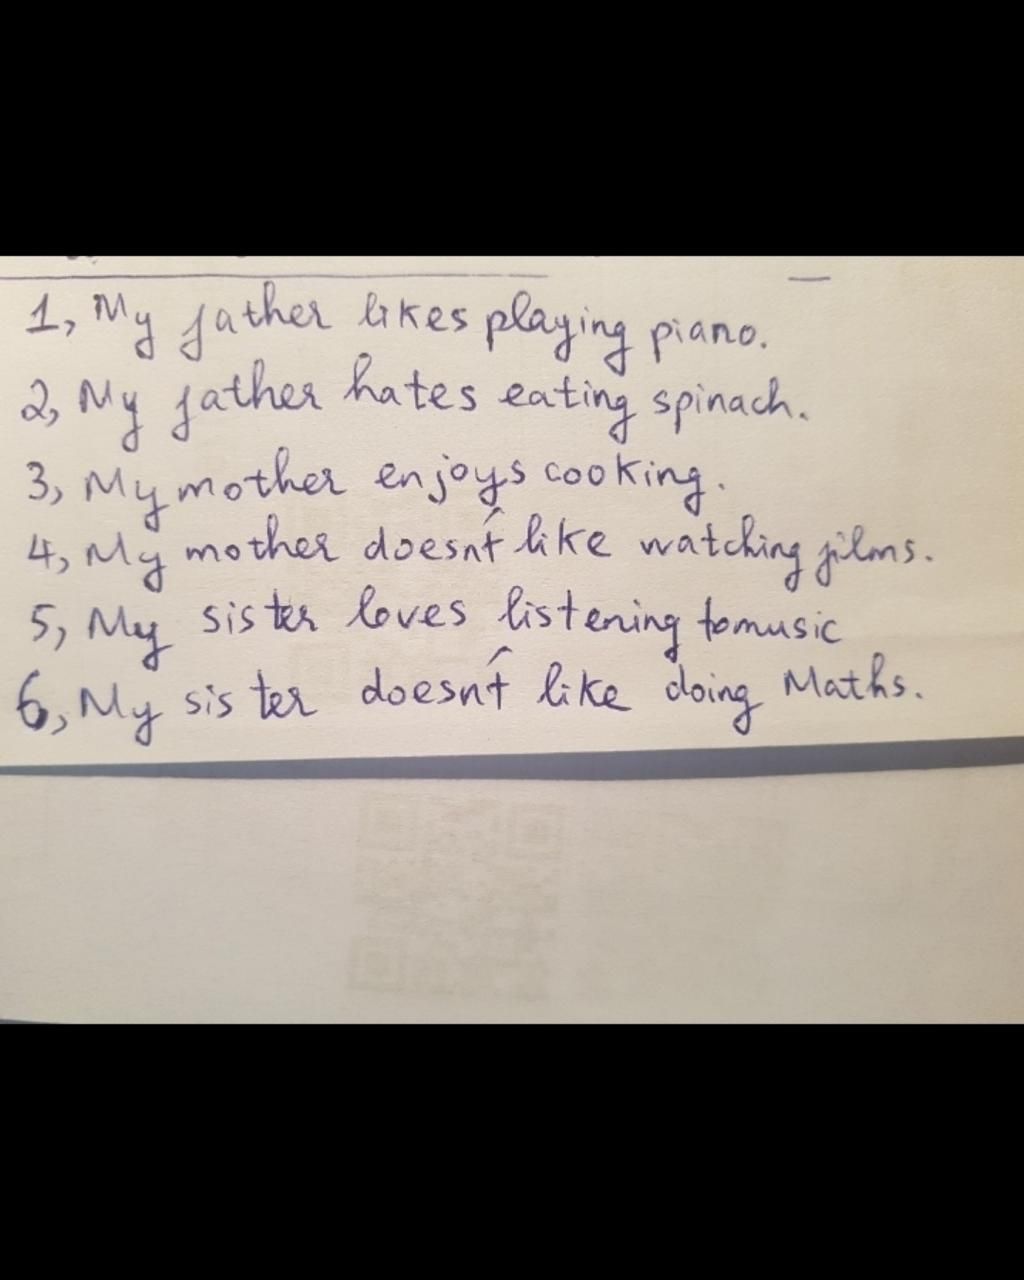 1, My father likes playing piano.
2, My father hates eating spinach.
3, My mother enjoys cooking.
4, My mother doesn't like watching films.
5, My sister loves listening to music
6, My sister doesn't like doing Maths.